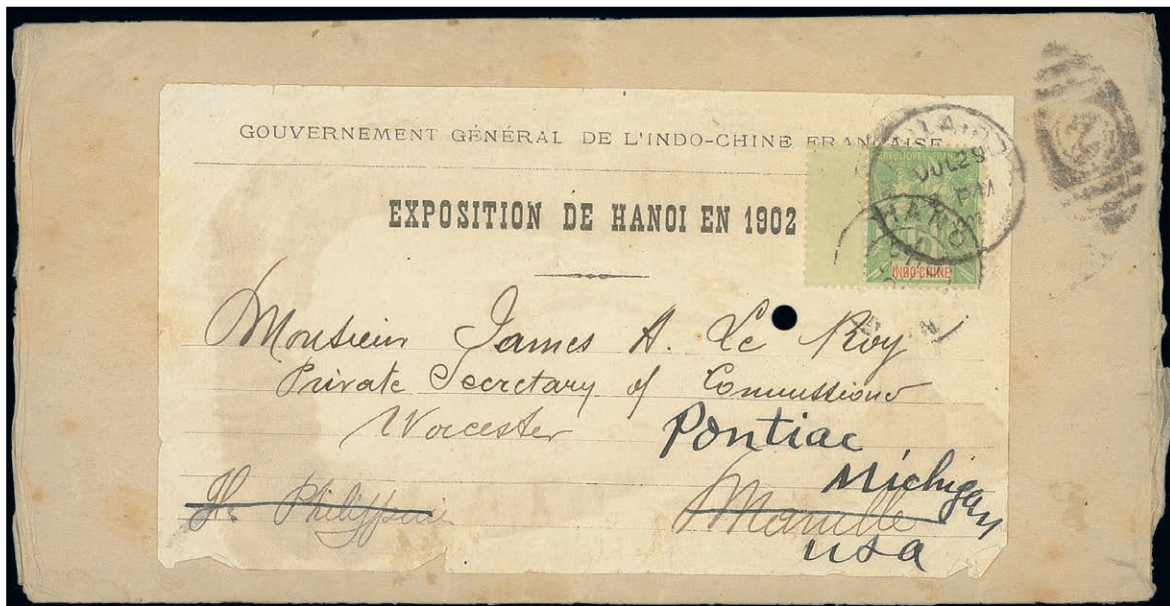 GOUVERNEMENT GÉNÉRAL DE L'INDO-CHINE FRANÇAISE
EXPOSITION DE HANOI EN 1902
JUL 29
PM
5
INDO-CHINE
Monsieur James A. Le Roy
Private Secretary of Commissioner
Worcester
Pontiac
Michigan
Is. Philippines
Manille
USA